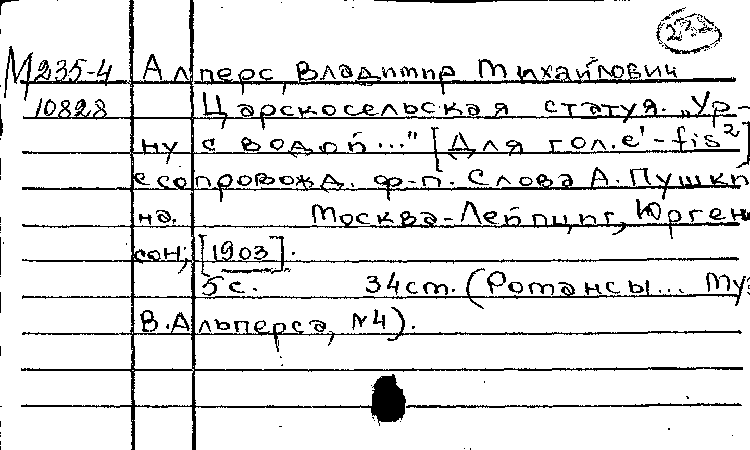 232
М235-4 Алперс, Владимир Михайлович
10828 Царскосельская статуя. „Ур-
ну с водой..." [Для гол. e'-fis²]
с сопровожд. ф-п. Слова А. Пушки
на. Москва-Лейпциг, Юрген
сон, [1903].
5 с. 34 см. (Романсы... Муз
В. Альперса, №4).